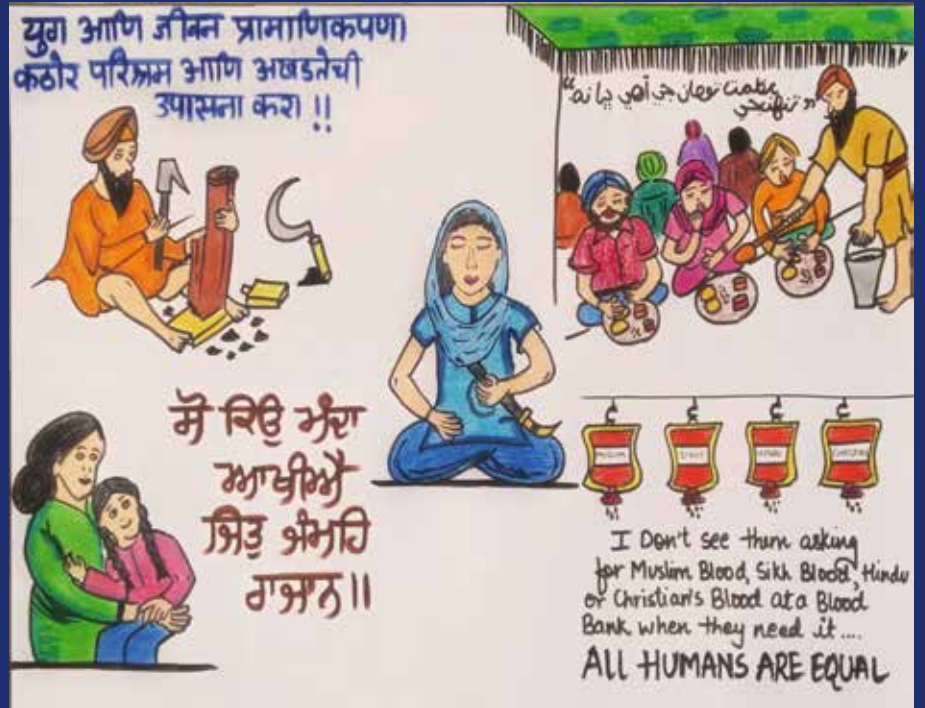 युग आणि जीवन प्रामाणिकपणा
कठोर परिश्रम आणि अखडतेची
उपासना करा !!
عظمت توهان جي آهي يا نه
ਸੋ ਕਿਉ ਮੰਦਾ
ਆਖੀਐ
ਜਿਤੁ ਜੰਮਹਿ
ਰਾਜਾਨ॥
MUSLIM SIKH HINDU CHRISTIAN
I Don't see them asking
for Muslim Blood, Sikh Blood, Hindu
or Christian's Blood at a Blood
Bank when they need it....
ALL HUMANS ARE EQUAL